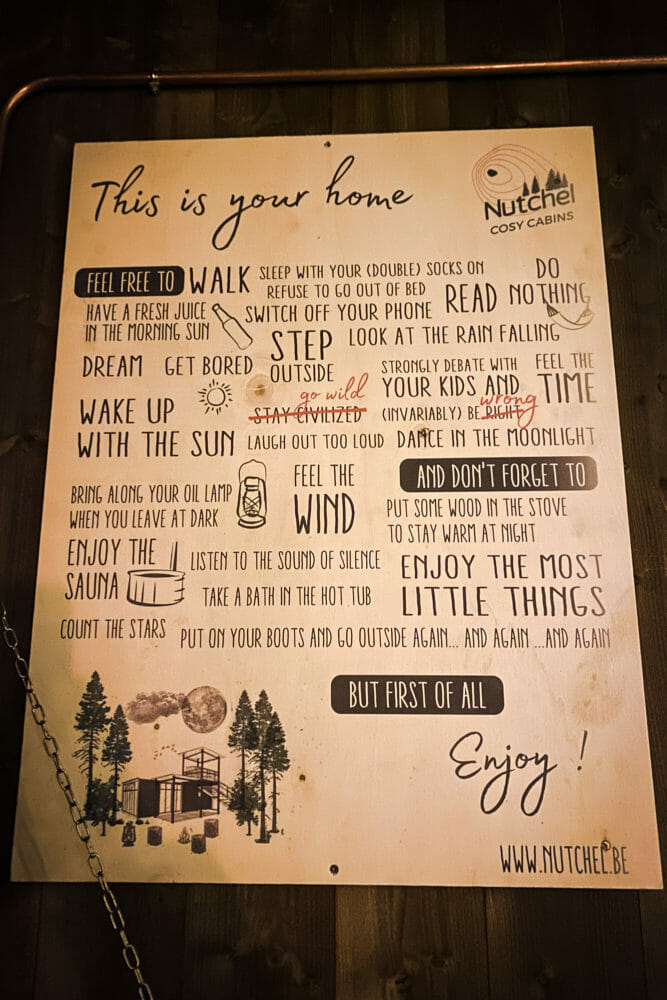 This is your home
Nutchel
COSY CABINS
FEEL FREE TO WALK
SLEEP WITH YOUR (DOUBLE) SOCKS ON
REFUSE TO GO OUT OF BED
DO
NOTHING
HAVE A FRESH JUICE
IN THE MORNING SUN
SWITCH OFF YOUR PHONE
READ
STEP
OUTSIDE
LOOK AT THE RAIN FALLING
DREAM
GET BORED
STRONGLY DEBATE WITH
YOUR KIDS AND
wrong
(INVARIABLY) BE RIGHT
FEEL THE
TIME
WAKE UP
WITH THE SUN
go wild
STAY CIVILIZED
LAUGH OUT TOO LOUD
DANCE IN THE MOONLIGHT
BRING ALONG YOUR OIL LAMP
WHEN YOU LEAVE AT DARK
FEEL THE
WIND
AND DON'T FORGET TO
PUT SOME WOOD IN THE STOVE
TO STAY WARM AT NIGHT
ENJOY THE
SAUNA
LISTEN TO THE SOUND OF SILENCE
TAKE A BATH IN THE HOT TUB
ENJOY THE MOST
LITTLE THINGS
COUNT THE STARS
PUT ON YOUR BOOTS AND GO OUTSIDE AGAIN... AND AGAIN ...AND AGAIN
BUT FIRST OF ALL
Enjoy !
WWW.NUTCHEL.BE